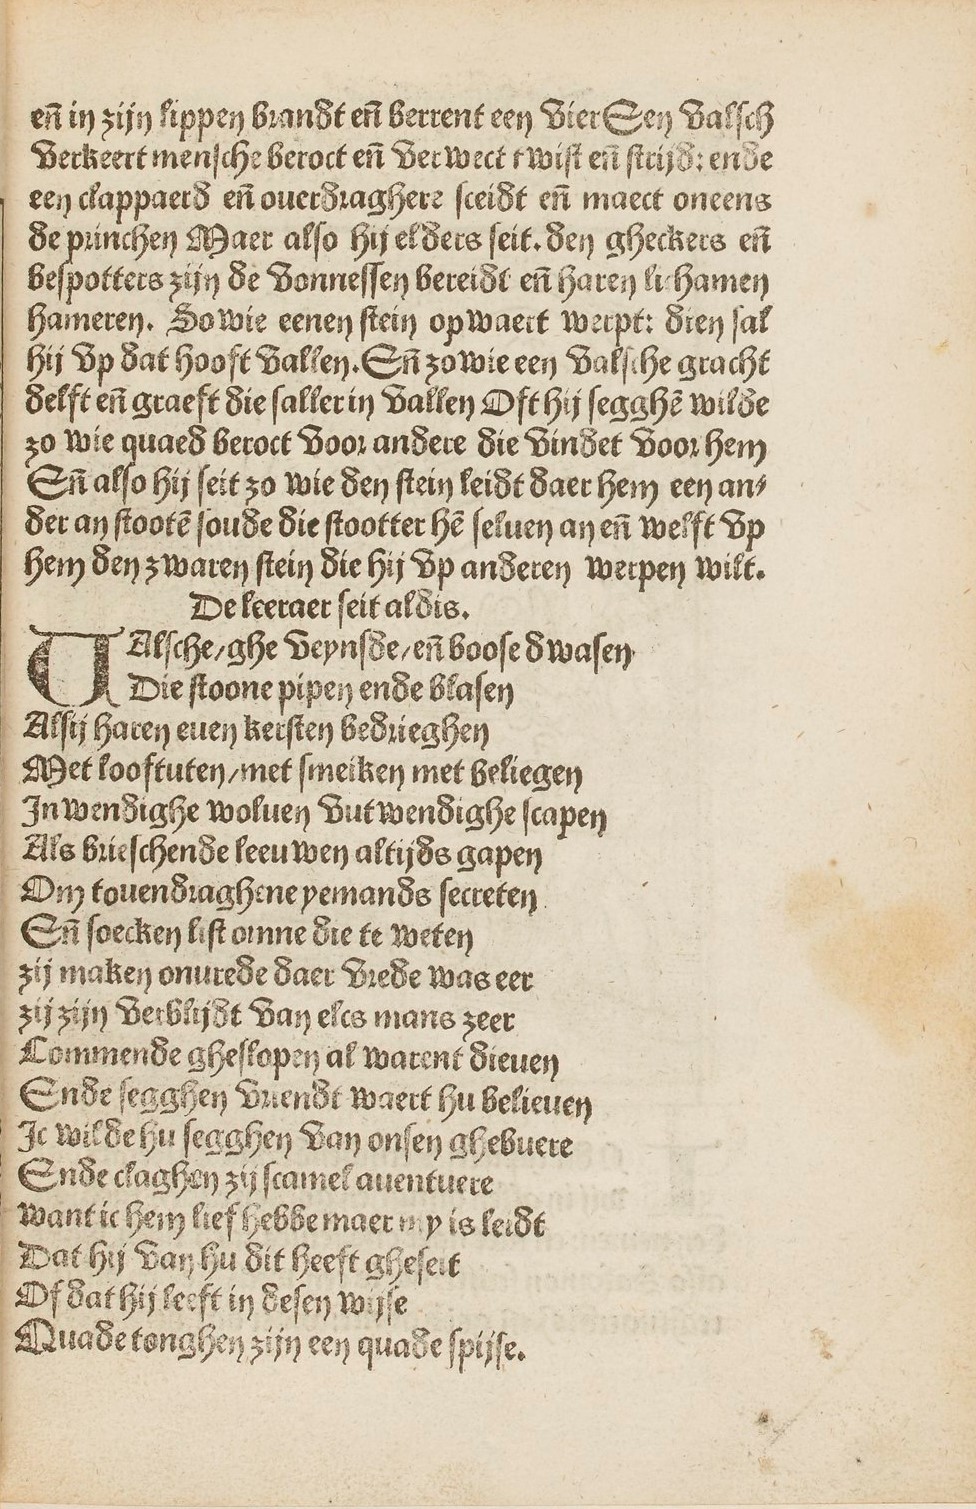 en̄ in zijn lippen brandt en̄ berrent een vier Een valsch
verkeert mensche beroct en̄ verwect twist en̄ strijd: ende
een clappaerd en̄ ouerdraghere sceidt en̄ maect oneens
de princhen Maer also hij elders seit. den gheckers en̄
bespotters zijn de vonnessen bereidt en̄ haren lichamen
hameren. So wie eenen stein opwaert werpt: dien sal
hij vp dat hooft vallen. En̄ zo wie een valsche gracht
delft en̄ graeft die saller in vallen Oft hij segghē wilde
zo wie quaed beroct voor andere die vindet voor hem
En̄ also hij seit zo wie den stein leidt daer hem een an⸗
der an stootē soude die stootter hē seluen an en̄ welft vp
hem den zwaren stein die hij vp anderen werpen wilt.
De leeraer seit aldis.
VAlsche/ghe veynsde/en̄ boose dwasen
Die stoone pipen ende blasen
Alsij haren euen kersten bedrieghen
Met looftuten/met smeiken met beliegen
Inwendighe woluen vutwendighe scapen
Als brieschende leeuwen altijds gapen
Om touendraghene yemands secreten
En̄ soecken list omne die te weten
zij maken onurede daer vrede was eer
zij zijn verblijdt van elcs mans zeer
Commende gheslopen al warent dieuen
Ende segghen vriendt waert hu belieuen
Ic wilde hu segghen van onsen ghebuere
Ende claghen zij scamel auentuere
want ic hem lief hebbe maer my is leidt
Dat hij van hu dit heeft gheseit
Of dat hij leeft in desen wijse
Quade tonghen zijn een quade spijse.